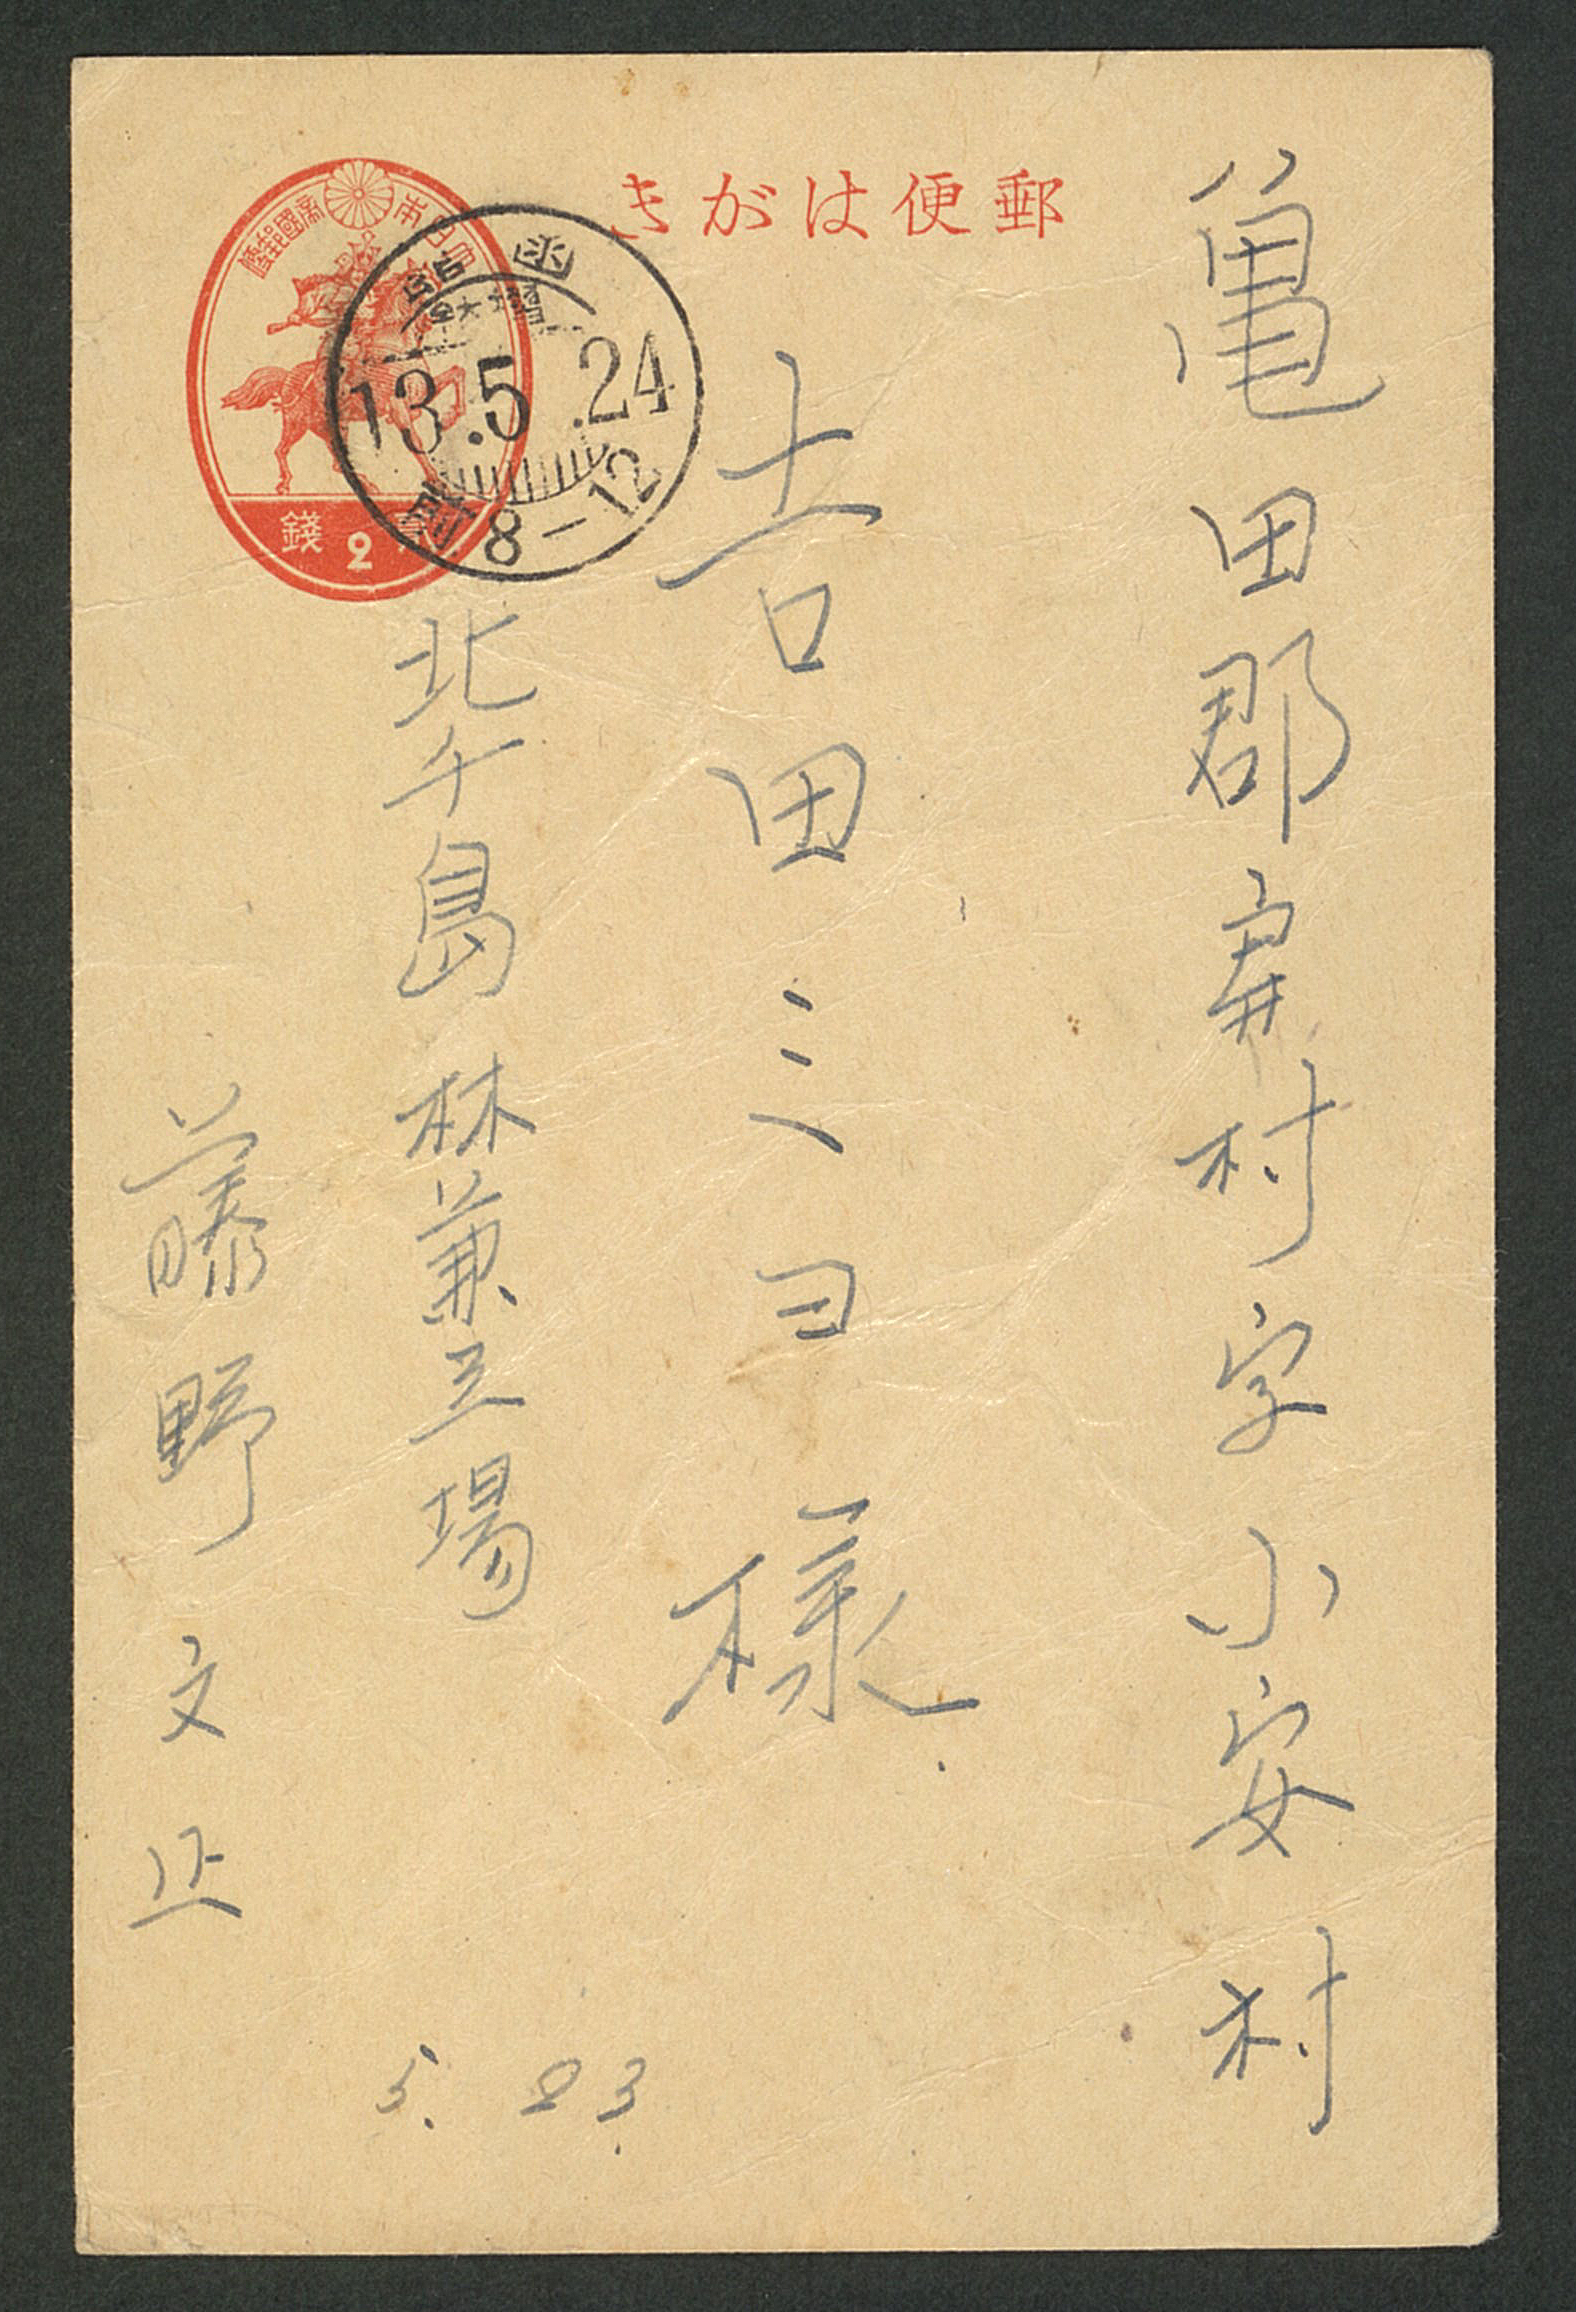 郵便はがき
大日本帝國郵便
貳 2 錢
函館
13.5.24
前8-12
亀田郡 村字小安村
吉田三
様
北千島林兼工場
藤野文正
5.23.